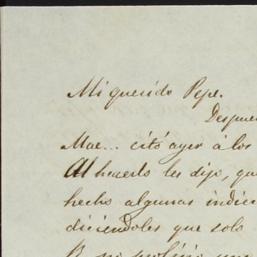 Mi querido Pepe.
Despue
Mac... citó ayer á los
Al hacerlo les dijo, que
hecho algunas indic
diciéndoles que solo